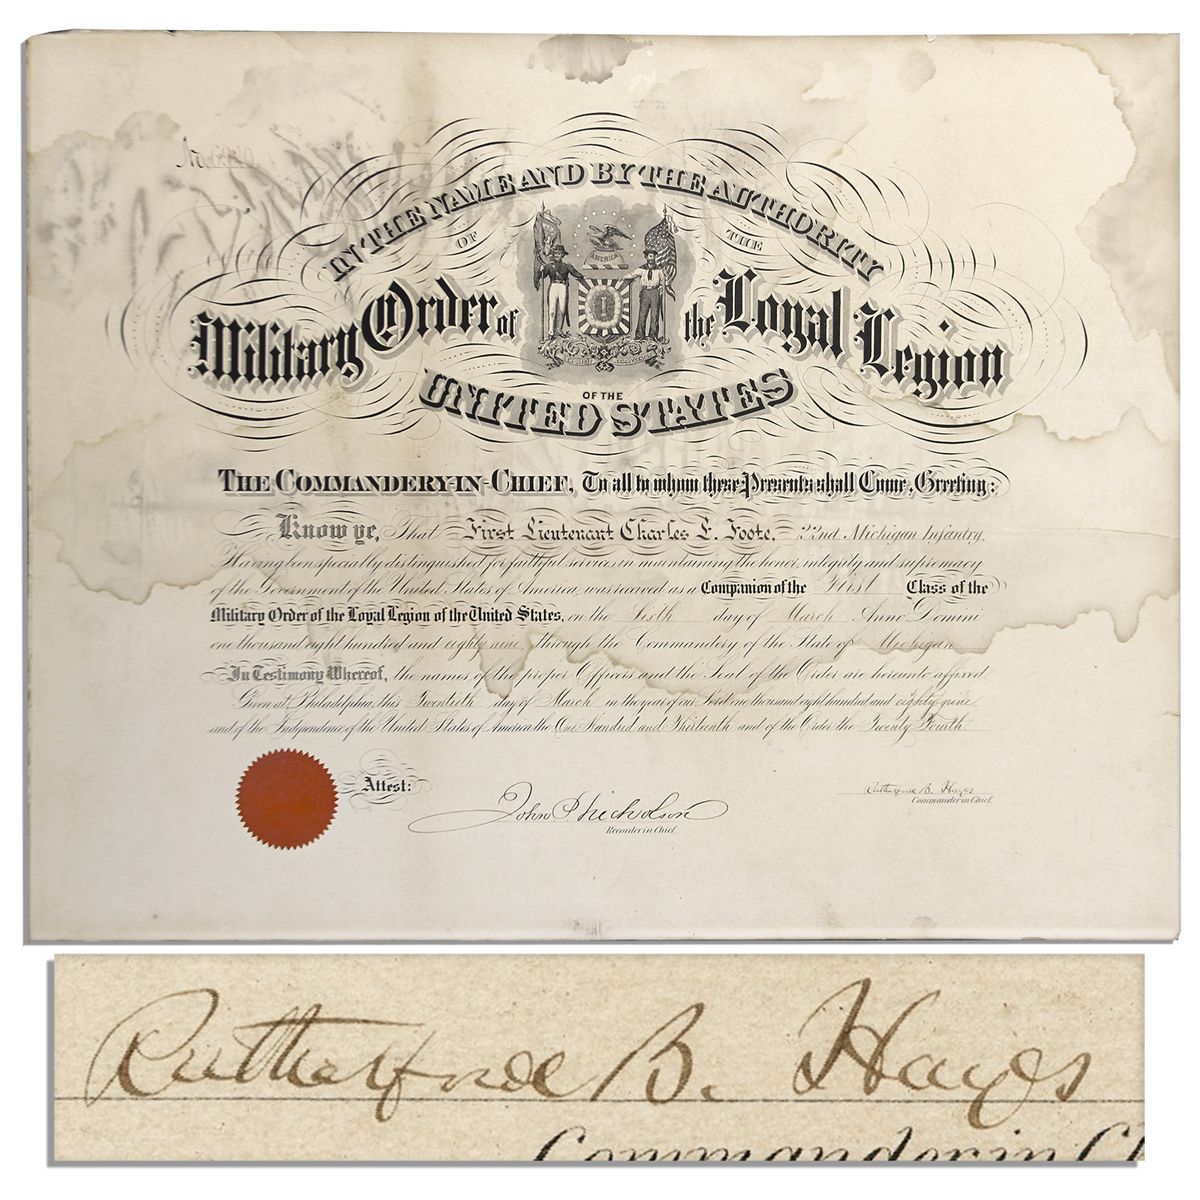 No.
IN THE NAME AND BY THE AUTHORITY
OF THE
AMERICA
Military Order of the Loyal Legion
OF THE
UNITED STATES
THE COMMANDERY-IN-CHIEF, To all to whom these Presents shall Come, Greeting:
Know ye, That First Lieutenant Charles E. Foote, 22nd Michigan Infantry,
Having been specially distinguished for faithful services in maintaining the honor, integrity and supremacy
of the Government of the United States of America, was received as a Companion of the First Class of the
Military Order of the Loyal Legion of the United States, on the Sixth day of March Anno Domini
one thousand eight hundred and eighty nine, through the Commandery of the State of Michigan
In Testimony Whereof, the names of the proper Officers and the Seal of the Order are hereunto affixed.
Given at Philadelphia, this Twentieth day of March in the year of our Lord one thousand eight hundred and eighty nine
and of the Independence of the United States of America the One Hundred and Thirteenth and of the Order the Twenty Fourth.
Attest:
John P. Nicholson
Recorder in Chief.
Rutherford B. Hayes
Commander in Chief.
Rutherford B. Hayes
Commander in Ch